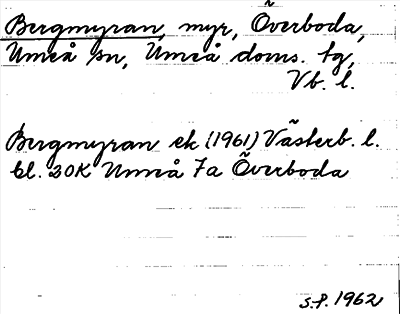 Bergmyran, myr, Överboda,
Umeå sn, Umeå doms. tg,
Vb. l.
Bergmyran ek (1961) Västerb. l.
bl. 20K Umeå 7a Överboda
S.P. 1962